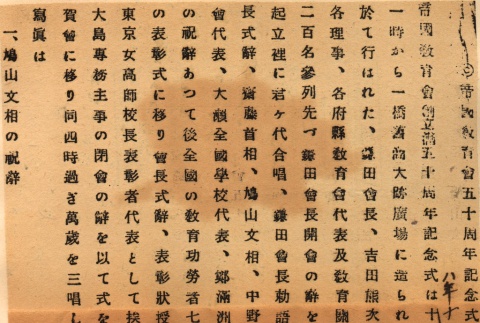 ◎帝國敎育會五十周年記念式
帝國敎育會創立滿五十周年記念式は十
一時から一橋舊商大跡廣場に造られ
於て行はれた、鎌田會長、吉田熊次
各理事、各府縣敎育會代表及敎育關
二百名參列先づ鎌田會長開會の辭を
起立裡に君ヶ代合唱、鎌田會長勅語
長式辭、齋藤首相、鳩山文相、中野
會代表、大 全國學校代表、鄭滿洲
の祝辭あつて後全國の敎育功勞者七
の表彰式に移り會長式辭、表彰狀授
東京女高師校長表彰者代表として挨
大島專務主事の閉會の辭を以て式を
賀會に移り同四時過ぎ萬歲を三唱し
寫眞は
一、鳩山文相の祝辭
八年十